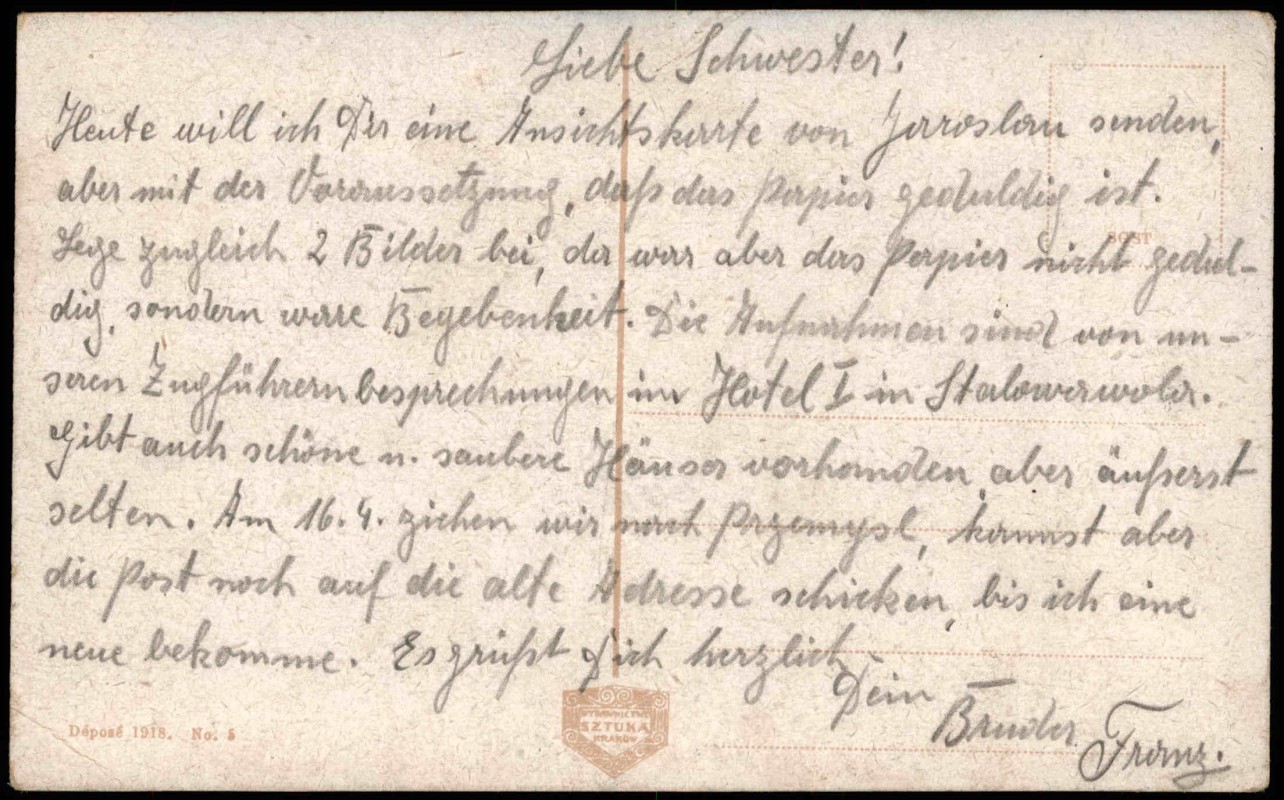 Liebe Schwester!
Heute will ich Dir eine Ansichtskarte von Jaroslau senden,
aber mit der Voraussetzung, daß das Papier geduldig ist.
POST
Lege zugleich 2 Bilder bei, da war aber das Papier nicht gedul-
dig, sondern ware Begebenheit. Die Aufnahmen sind von un-
seren Zugführernbesprechungen im Hotel I in Stalowawola.
Gibt auch schöne u. saubere Häuser vorhanden, aber äußerst
selten. Am 16.4. ziehen wir nach Przemysl, kannst aber
die Post noch auf die alte Adresse schicken, bis ich eine
neue bekomme. Es grüßt Dich herzlich
Dein
Bruder Franz.
Déposé 1918. No. 5
WYDAWNICTWO
SZTUKA
KRAKÓW